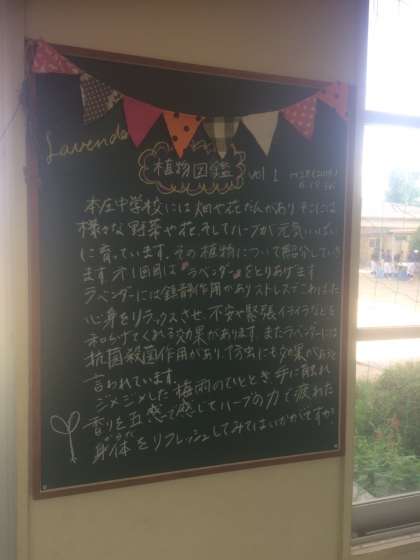 Lavender
植物図鑑 vol 1
本庄中学校には畑や花だんがあり、そこには
様々な野菜や花、そしてハーブが元気いっぱい
に育っています。その植物について紹介していき
ます。オ1回目は"ラベンダー"をとりあげます
ラベンダーには鎮静作用がありストレスでこわばった
心身をリラックスさせ、不安や緊張イライラなどを
和らげてくれる効果があります。またラベンダーには
抗菌殺菌作用があり、防虫にも効果があると
言われています。
ジメジメした梅雨のひととき、手に触れ
香りを五感で感じてハーブの力で疲れた
身体をリフレッシュしてみてはいかがですか?